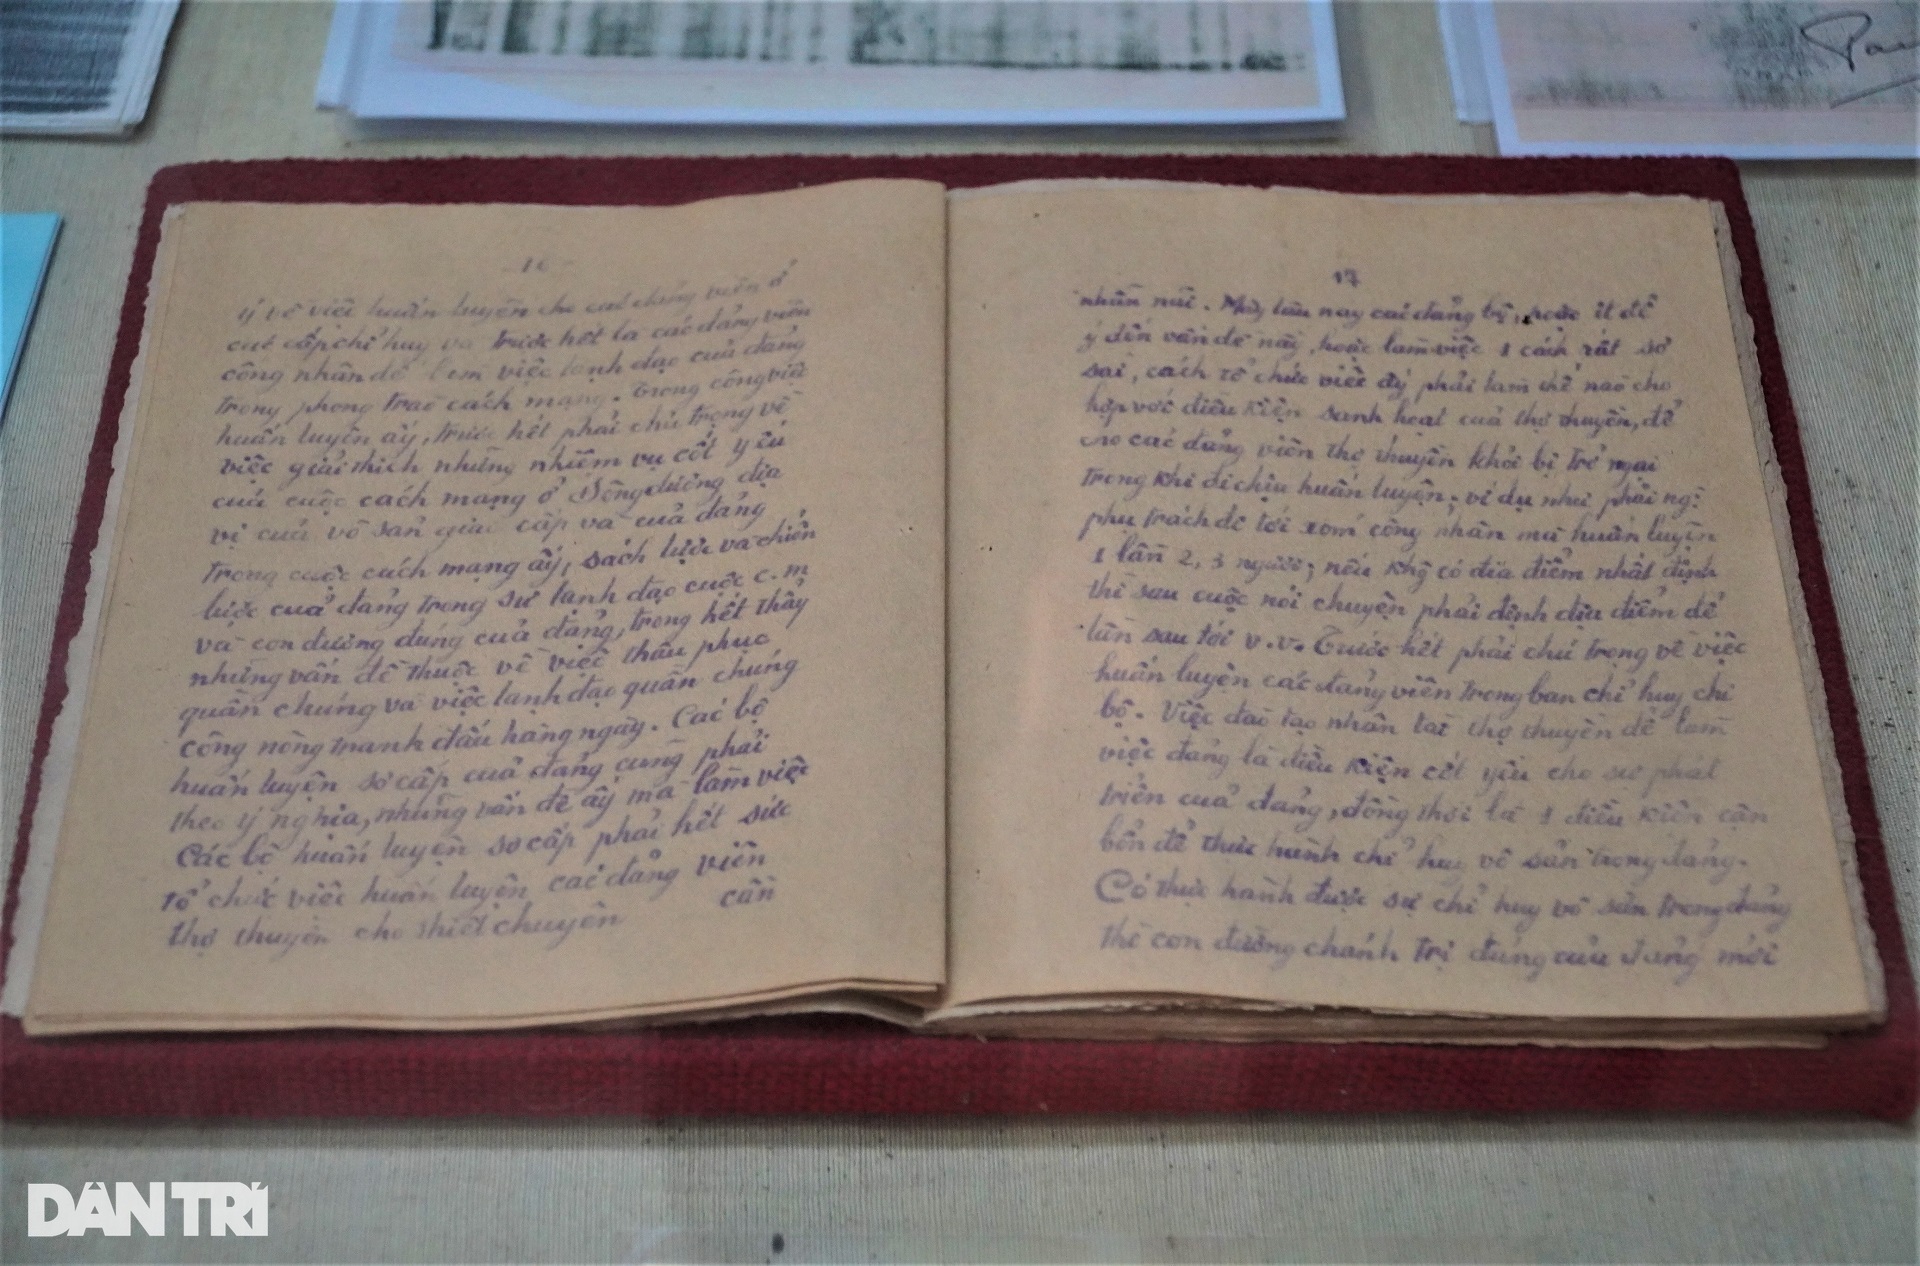 16
ý về việc huấn luyện cho các đảng viên ở
các cấp chỉ huy và trước hết là các đảng viên
công nhân để làm việc lãnh đạo của đảng
trong phong trào cách mạng. Trong công việc
huấn luyện ấy, trước hết phải chú trọng về
việc giải thích những nhiệm vụ cốt yếu
của cuộc cách mạng ở Đông dương địa
vị của vô sản giai cấp và của đảng
trong cuộc cách mạng ấy, sách lược và chiến
lược của đảng trong sự lãnh đạo cuộc c.m
và con đường đúng của đảng, trong hết thảy
những vấn đề thuộc về việc thâu phục
quần chúng và việc lãnh đạo quần chúng
công nông tranh đấu hàng ngày. Các bộ
huấn luyện sơ cấp của đảng cũng phải
theo ý nghĩa, những vấn đề ấy mà làm việc
Các bộ huấn luyện sơ cấp phải hết sức
tổ chức việc huấn luyện các đảng viên
thợ thuyền cho thiết chuyên
cần
17
nhẫn nại. Mấy lâu nay các đảng bộ, hoặc ít để
ý đến vấn đề này, hoặc làm việc 1 cách rất sơ
sài, cách tổ chức việc ấy phải làm thế nào cho
hợp với điều kiện sanh hoạt của thợ thuyền, để
cho các đảng viên thợ thuyền khỏi bị trở ngại
trong khi đi chịu huấn luyện; ví dụ như phái ng:
phụ trách đi tới xóm công nhân mà huấn luyện
1 lần 2, 3 người; nếu khg có địa điểm nhất định
thì sau cuộc nói chuyện phải định địa điểm để
lần sau tới v.v. Trước hết phải chú trọng về việc
huấn luyện các đảng viên trong ban chỉ huy chi
bộ. Việc đào tạo nhân tài thợ thuyền để làm
việc đảng là điều kiện cốt yếu cho sự phát
triển của đảng, đồng thời là 1 điều kiện căn
bổn để thực hành chỉ huy vô sản trong đảng.
Có thực hành được sự chỉ huy vô sản trong đảng
thì con đường chánh trị đúng của đảng mới
DÂN TRÍ